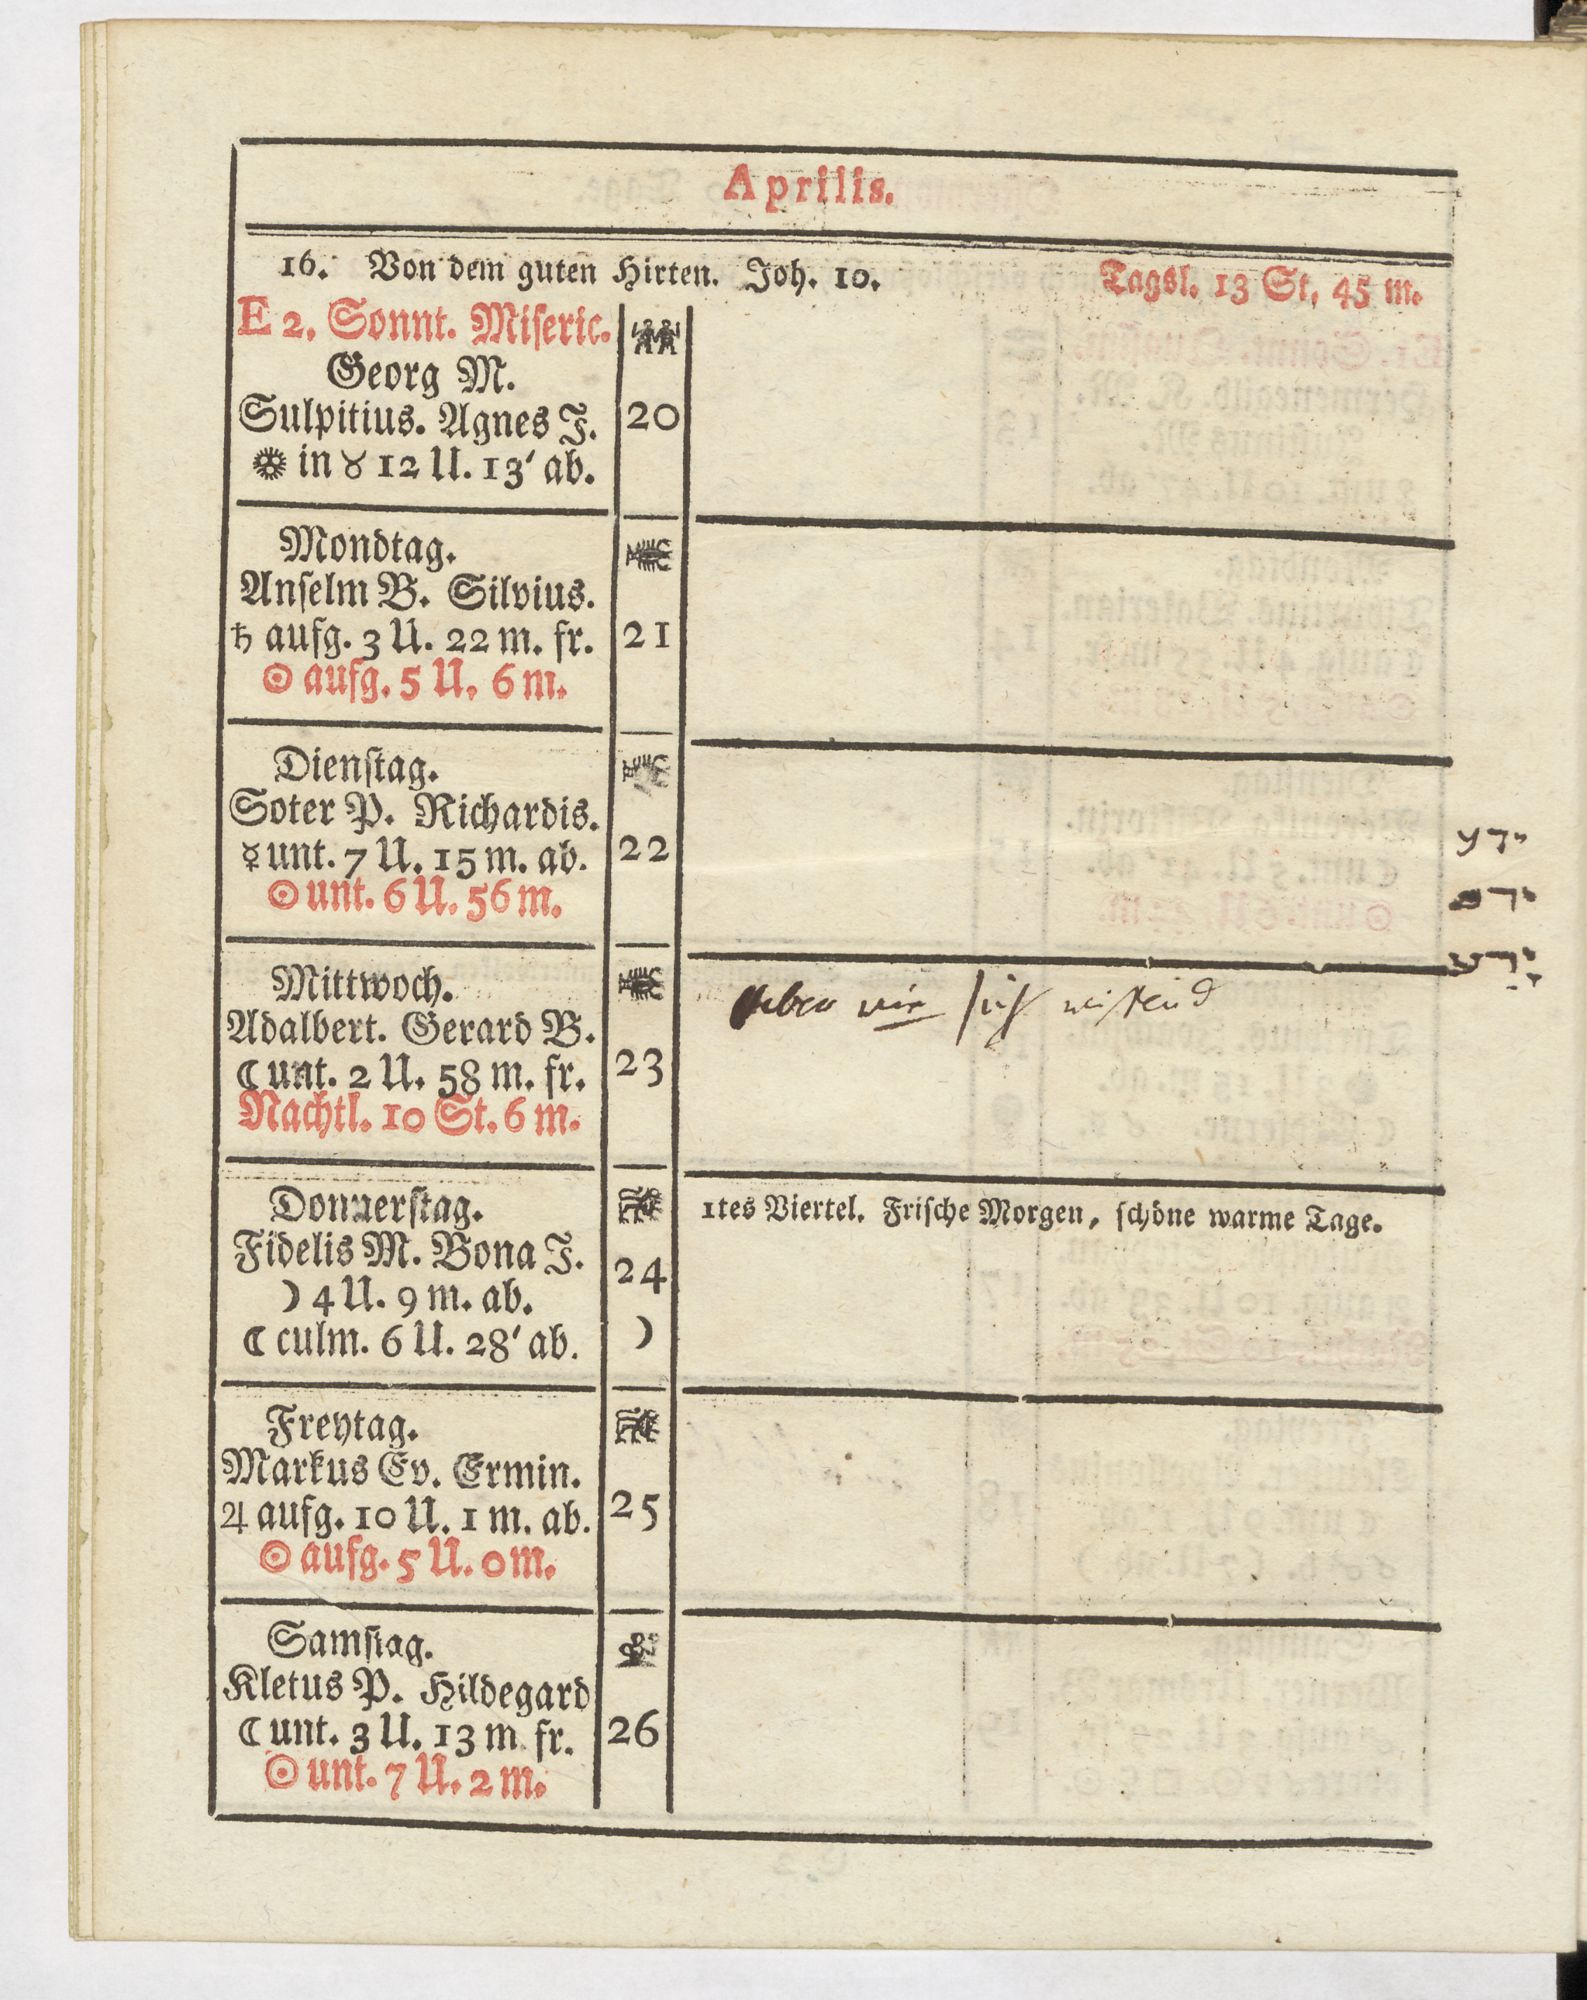 Aprilis.
16. Von dem guten Hirten. Joh. 10. Tagsl. 13 St. 45 m.
E 2. Sonnt. Miseric.
Georg M.
Sulpitius. Agnes J. 20
in ♉ 12 U. 13' ab.
Mondtag.
Anselm B. Silvius.
♄ aufg. 3 U. 22 m. fr. 21
☉ aufg. 5 U. 6 m.
Dienstag.
Soter P. Richardis.
☿ unt. 7 U. 15 m. ab. 22
☉ unt. 6 U. 56 m.
Mittwoch.
wir
Adalbert. Gerard B.
☾ unt. 2 U. 58 m. fr. 23
Nachtl. 10 St. 6 m.
Donnerstag. 1tes Viertel. Frische Morgen, schöne warme Tage.
Fidelis M. Bona J. 24
☽ 4 U. 9 m. ab.
☾ culm. 6 U. 28' ab. ☽
Freytag.
Markus Ev. Ermin.
♃ aufg. 10 U. 1 m. ab. 25
☉ aufg. 5 U. 0 m.
Samstag.
Kletus P. Hildegard
☾ unt. 3 U. 13 m fr. 26
☉ unt. 7 U. 2 m.